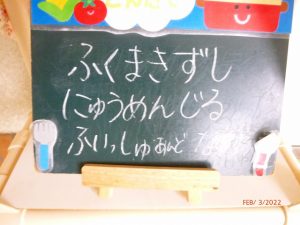 ふくまきずし
にゅうめんじる
ふぃっしゅあんど
FEB/ 3/2022